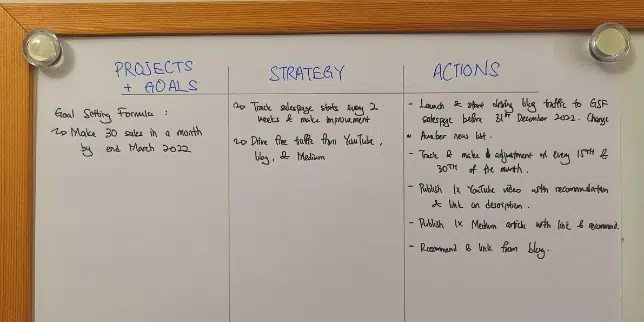 PROJECTS
+ GOALS
Goal Setting Formula :
Make 30 sales in a month
by end March 2022
STRATEGY
Track salespage stats every 2
weeks & make improvement
Drive the traffic from YouTube,
blog, & Medium
ACTIONS
- Launch & start driving blog traffic to GSF
salespage before 31st December 2022. Change
number now list.
- Track & make adjustment on every 15TH &
30TH of the month.
- Publish 1x YouTube video with recommendation
& link on description.
- Publish 1x Medium article with link & recommend.
- Recommend & link from blog.